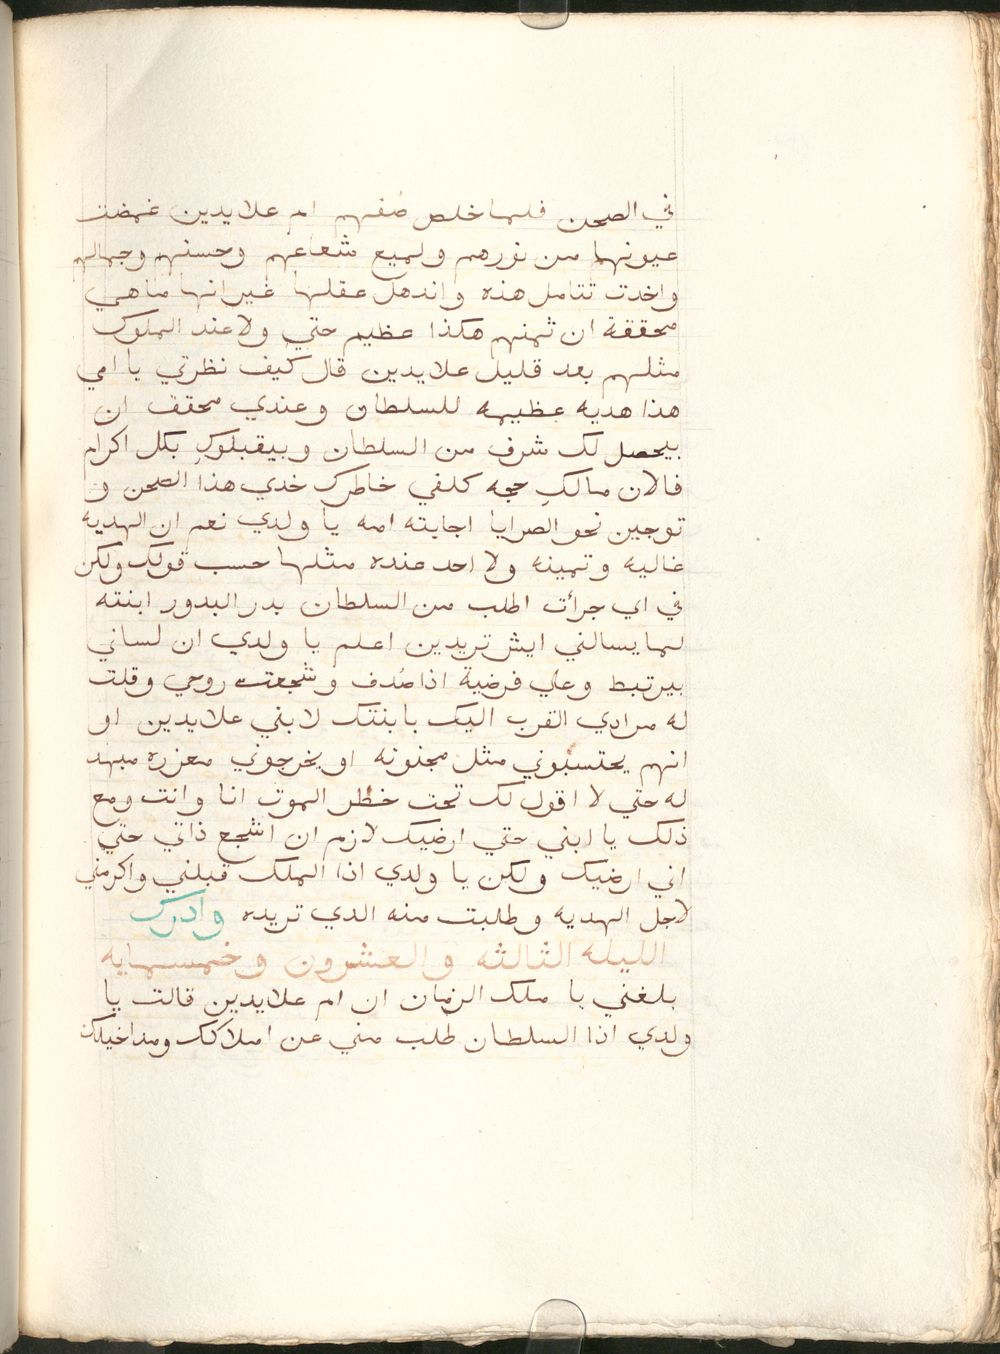 في الصحن فلما خلص صُفهم ام علايدين غمضت
عيونها من نورهم ولميع شعاعهم وحسنهم وجمالهم
واخدت تتامل هذه واندهل عقلها غير انها ما هي
محققة ان ثمنهم هكذا عظيم حتي ولا عند الملوك
مثلهم بعد قليل علايدين قال كيف نظرتي يا امي
هذا هديه عظيمه للسلطان وعندي محقق ان
بيحصل لك شرف من السلطان وبيقبلوكِ بكل اكرام
فالان مالكِ حجه كلفي خاطرك خدي هذا الصحن و
توجين نحو الصرايا اجابته امه يا ولدي نعم ان الهديه
غاليه وتمينه ولا احد عنده مثلها حسب قولك ولكن
في اي جرأت اطلب من السلطان بدر البدور ابنته
لما يسالني ايش تريدين اعلم يا ولدي ان لساني
بيرتبط وعلي فرضية اذا صُدف وشجعت روحي وقلت
له مرادي القرب اليك بابنتك لابني علايدين او
انهم يحتسبوني مثل مجنونه او يخرجوني معزره مبهد
له حتي لا اقول لك تحت خطر الموت انا وانت ومع
ذلك يا ابني حتي ارضيك لازم ان اشجع ذاتي حتي
اني ارضيك ولكن يا ولدي اذا الملك قبلني واكرمني
لاجل الهديه وطلبت منه الدي تريده وادرك
الليله الثالثه والعشرون وخمسمايه
بلغني يا ملك الزمان ان ام علايدين قالت يا
ولدي اذا السلطان طلب مني عن املاكك ومداخيلك